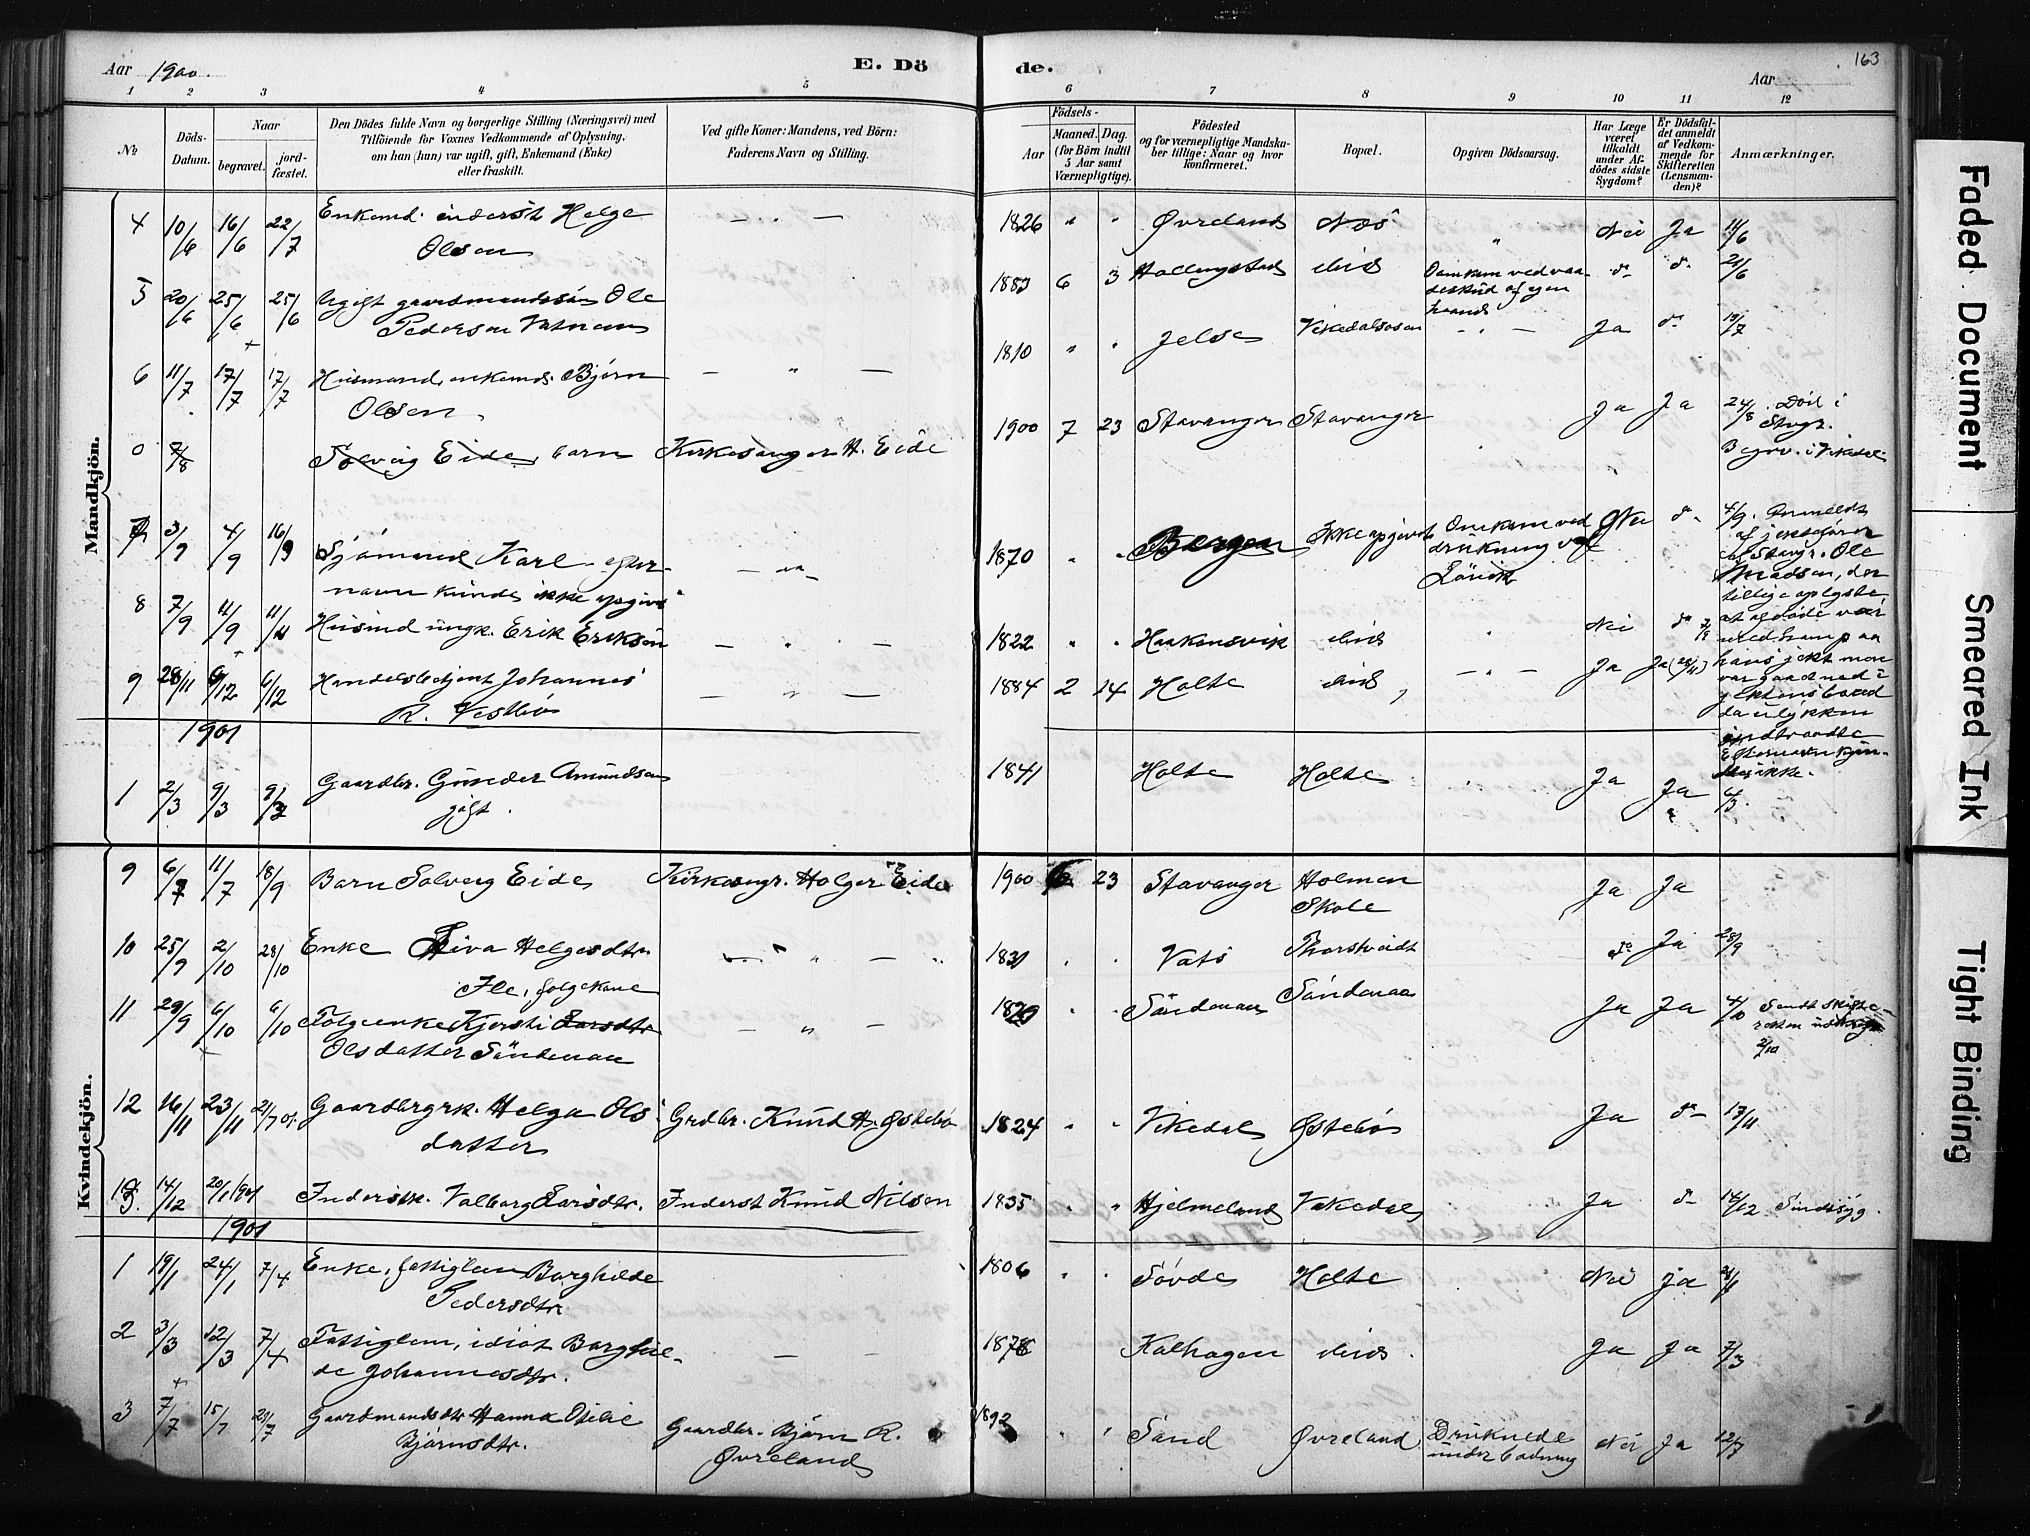 Aar 1900.
E. Dö
de.
Aar
163
1 2 3 4 5 6 7 8 9 10 11 12
No
Döds-Datum.
Naar
begravet.
jordfæstet.
Den Dödes fulde Navn og borgerlige Stilling (Næringsvei) med
Tilföiende for Voxnes Vedkommende af Oplysning,
om han (hun) var ugift, gift, Enkemand (Enke)
eller fraskilt.
Ved gifte Koner: Mandens, ved Börn:
Faderens Navn og Stilling.
Födsels-
Aar
Maaned. Dag.
(for Börn indtil
5 Aar samt
Værnepligtige).
Födested
og for værnepligtige Mandska-
ber tillige: Naar og hvor
konfirmeret.
Bopæl.
Opgiven Dödsaarsag.
Har Læge
været
tilkaldt
under Af-
dödes sidste
Sygdom?
Er Dödsfal-
det anmeldt
af Vedkom-
mende for
Skifteretten
(Lensman-
den)?
Anmærkninger.
Mandkjön.
4 10/6 16/6 22/7 Enkemd. inderst Helge
Olsen
1826 " " Øvreland Næs " Nei Ja 11/6
5 20/6 25/6 25/6 Ugift gaardmandssøn Ole
Pedersen Vatnem
1883 6 3 Hallingstad ibid Omkom ved vaa-
deskud af egen
haand
d- d- 21/6
6 11/7 17/7 17/7 Husmand, enkemd. Bjørn
Olsen
1810 " " Jelse Vikedalsosen — " — Ja d- 13/7
0 7/8 Solveig Eide, barn Kirkesanger H. Eide
1900 7 23 Stavanger Stavanger Ja Ja 24/8. Död i
Stvgr.
Begrv. i Vikedal
7 3/9 4/9 16/9 Sjömand Karl - efter-
navn kunde ikke opgives
1870 " " Bergen Ikke opgivet Omkom ved
drukning ved
Lörvik
Nei d- 4/9. Anmeldt
af jægtefører
af Stavgr. Ole
Madsen, der
tillige oplyste
at afdøde var
med ham paa
hans jekt men
var gaaet ned i
jektens baad
da ulykken
indtraadte
Efternavn kjen-
des ikke.
8 7/9 11/9 11/11 Husmd ungk. Erik Eriksen
1822 " " Haakonsvik ibid " Nei d-
9 28/11 6/12 6/12 Handelsbetjent Johannes
R. Vestbö
1884 2 14 Holte ibid — " — Ja Ja (28/11)
1901
1 2/3 9/3 9/3 Gaardbr. Gunder Amundsen
gift.
1841 Holte Holte " Ja Ja 4/3.
Kvindekjön.
9 6/7 11/7 18/9 Barn Solveig Eide Kirkesngr. Holger Eide
1900 6 23 Stavanger Holmen
Skole
Ja Ja
10 25/9 2/10 28/10 Enke Siva Helgesdtr.
Ile, folgekone
1831 " " Vats Thorstveidt d- Ja 28/9
11 29/9 6/10 6/10 Folgeenke Kjersti Larsdtr
Olsdatter Söndenaa
1820 " " Söndenaa Söndenaa Ja Ja 4/10 Sendt skifte-
retten
2/10
12 16/11 23/11 21/7 01. Gaardbrgrk. Helga Ols
datter
Grdbr. Knud H. Østebø
1824 " " Vikedal Østebø Ja d- 17/11
13. 14/12 20/1 1901 Inderstk. Valborg Larsdtr. Inderst Knud Nilsen
1835 " " Hjelmeland Vikedal Ja d- 14/12 Sindssyg.
1901
1 19/1 24/1 7/4 Enke, fattiglem Borghilde
Pedersdtr.
1806 " " Sövde Holte Nei ja 21/1
2 3/3 12/3 7/4 Fattiglem, idiot Borghil-
de Johannesdtr.
1878 Kalhagen ibid. Ja Ja 7/3
3 7/7 15/7 21/7 Gaardmandsdtr Hanna Otilie
Bjørnsdtr.
Gaardbr. Bjørn R.
Øvreland
1892 " " Sand Øvreland Druknede
under badning
Nei Ja 12/7
Faded Document
Smeared Ink
Tight Binding